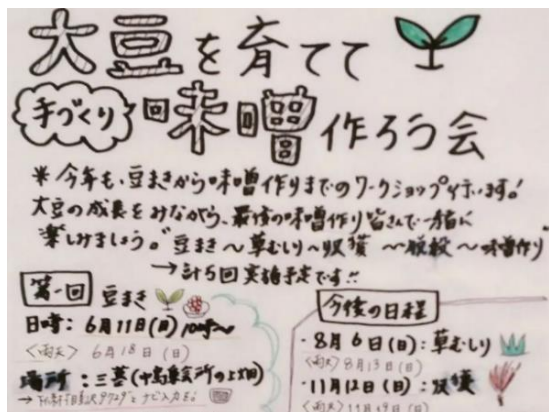 大豆を育てて
手づくり味噌作ろう会
＊今年も、豆まきから味噌作りまでのワークショップ行います!
大豆の成長をみながら、最後の味噌作り皆さんで一緒に
楽しみましょう。豆まき〜草むしり〜収穫〜脱穀〜味噌作り
→計5回実施予定です!!
第一回 豆まき
日時：6月11日(日)
〈雨天〉6月18日(日)
場所：
今後の日程
・8月6日(日)：草むしり
〈雨天〉8月13日(日)
・11月12日(日)：収穫
〈雨天〉11月19日(日)